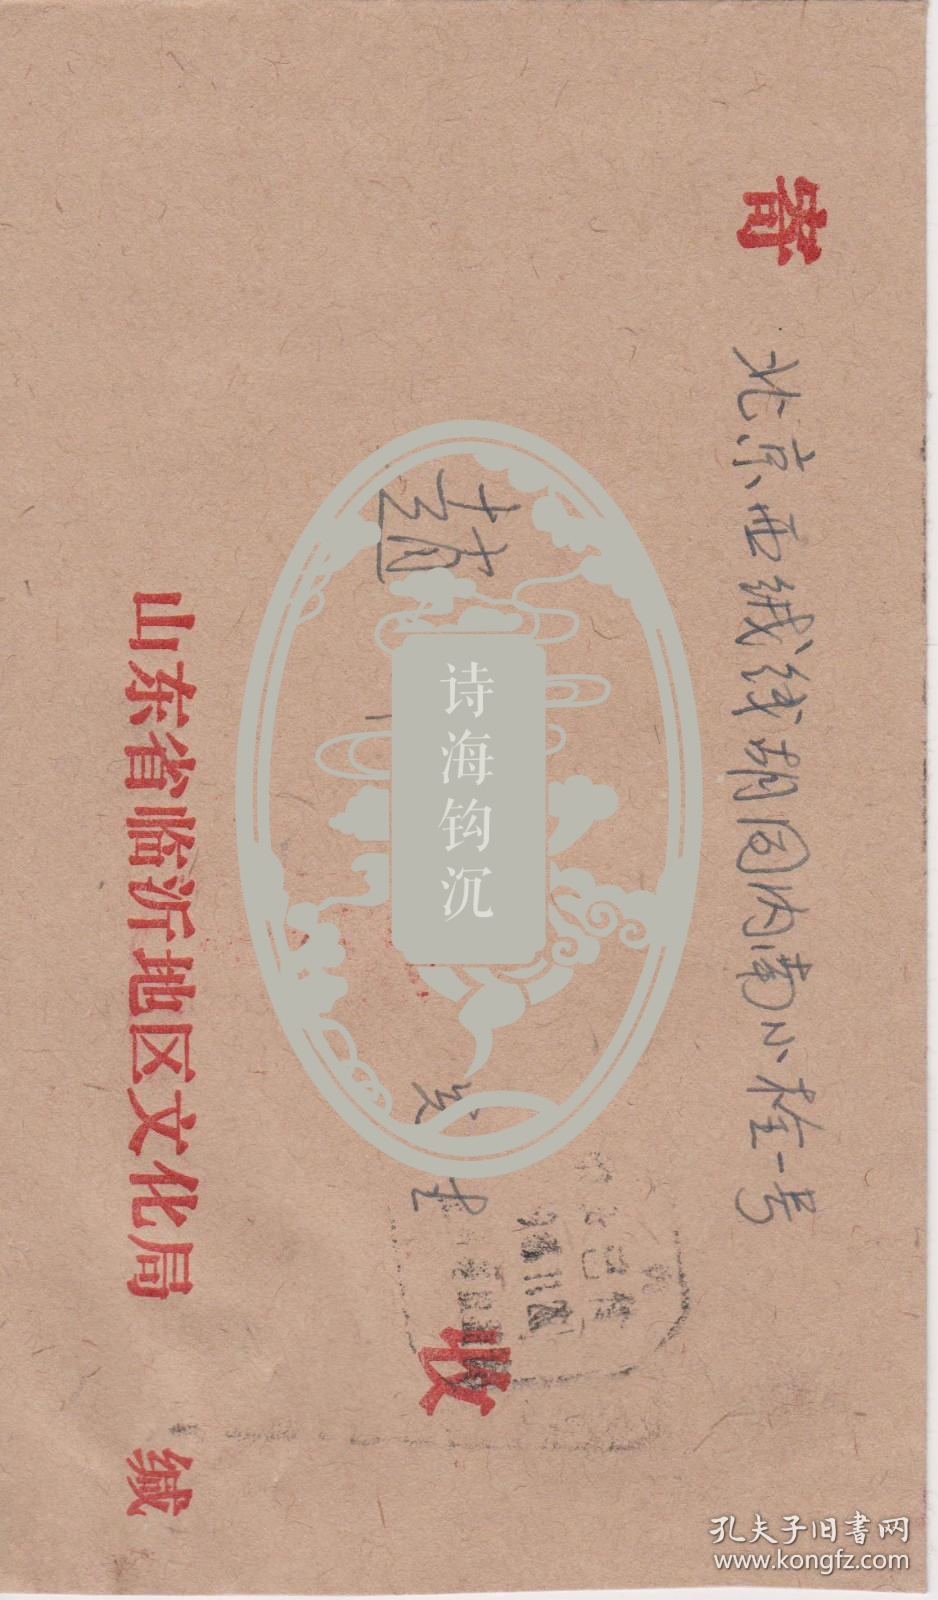 寄
北京西绒线胡同内南小栓一号
赵
收
山东省临沂地区文化局
缄
诗海钩沉
孔夫子旧书网
www.kongfz.com